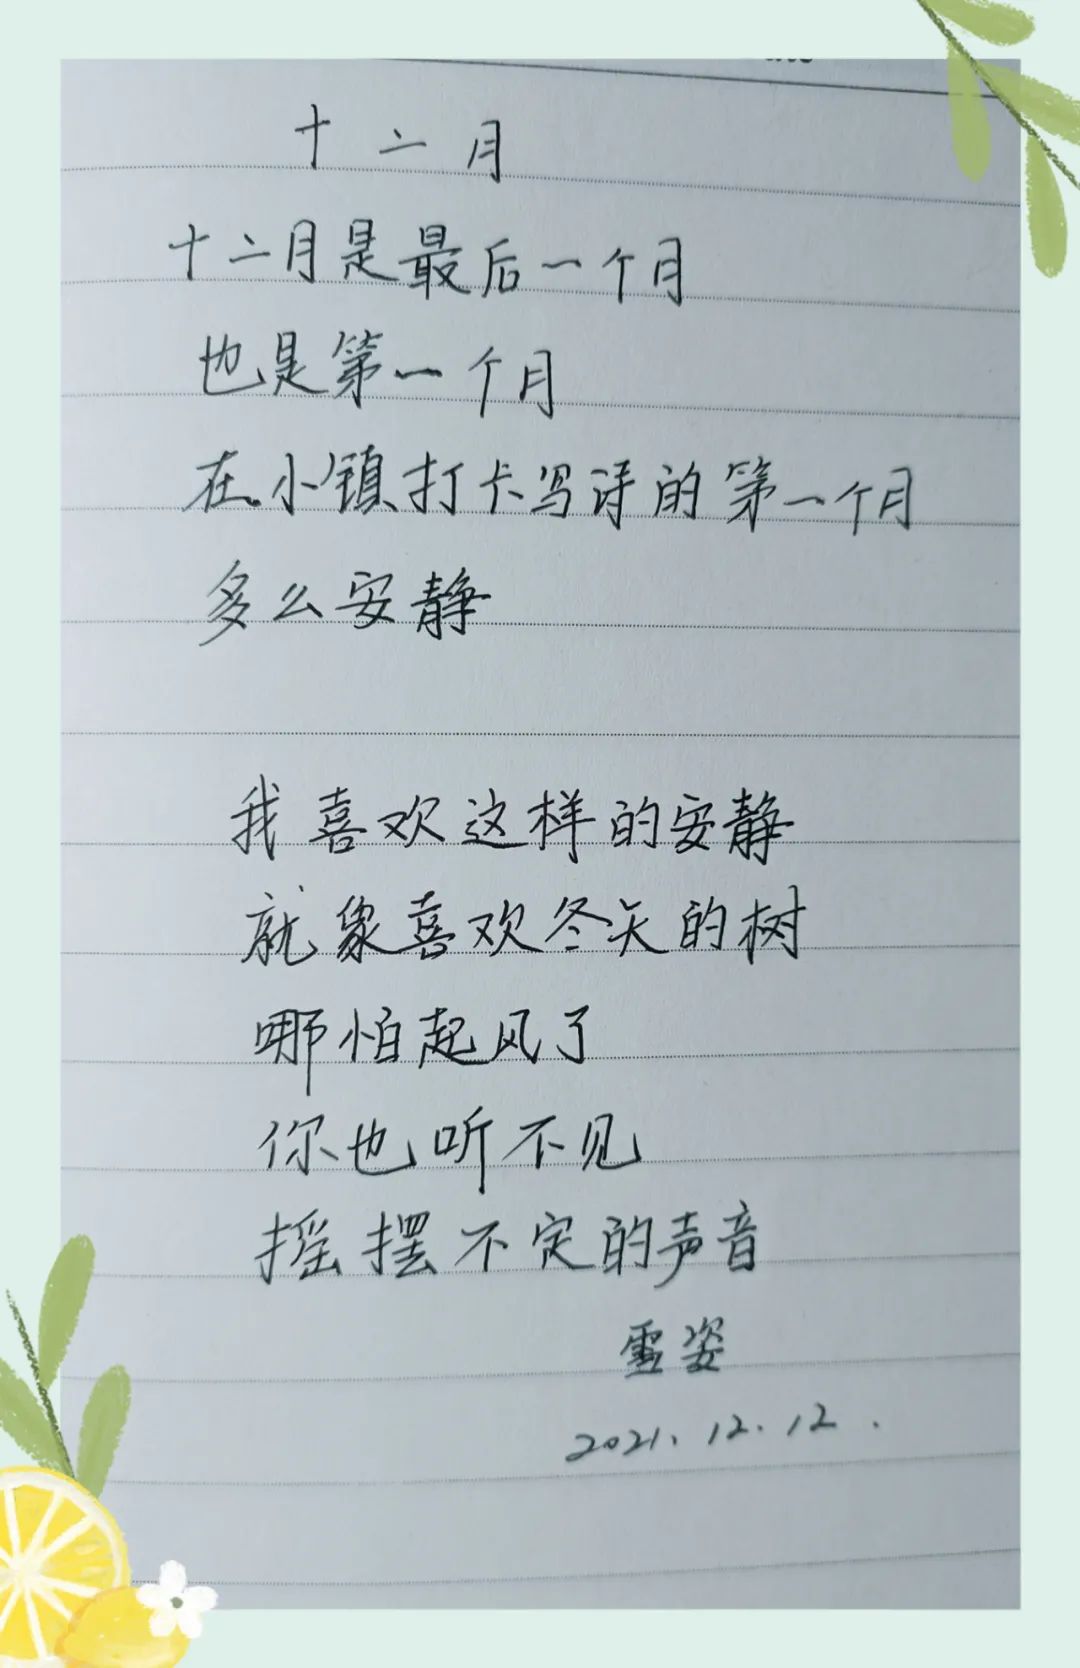 十二月
十二月是最后一个月
也是第一个月
在小镇打卡写诗的第一个月
多么安静
我喜欢这样的安静
就象喜欢冬天的树
哪怕起风了
你也听不见
摇摆不定的声音
雪姿
2021.12.12.